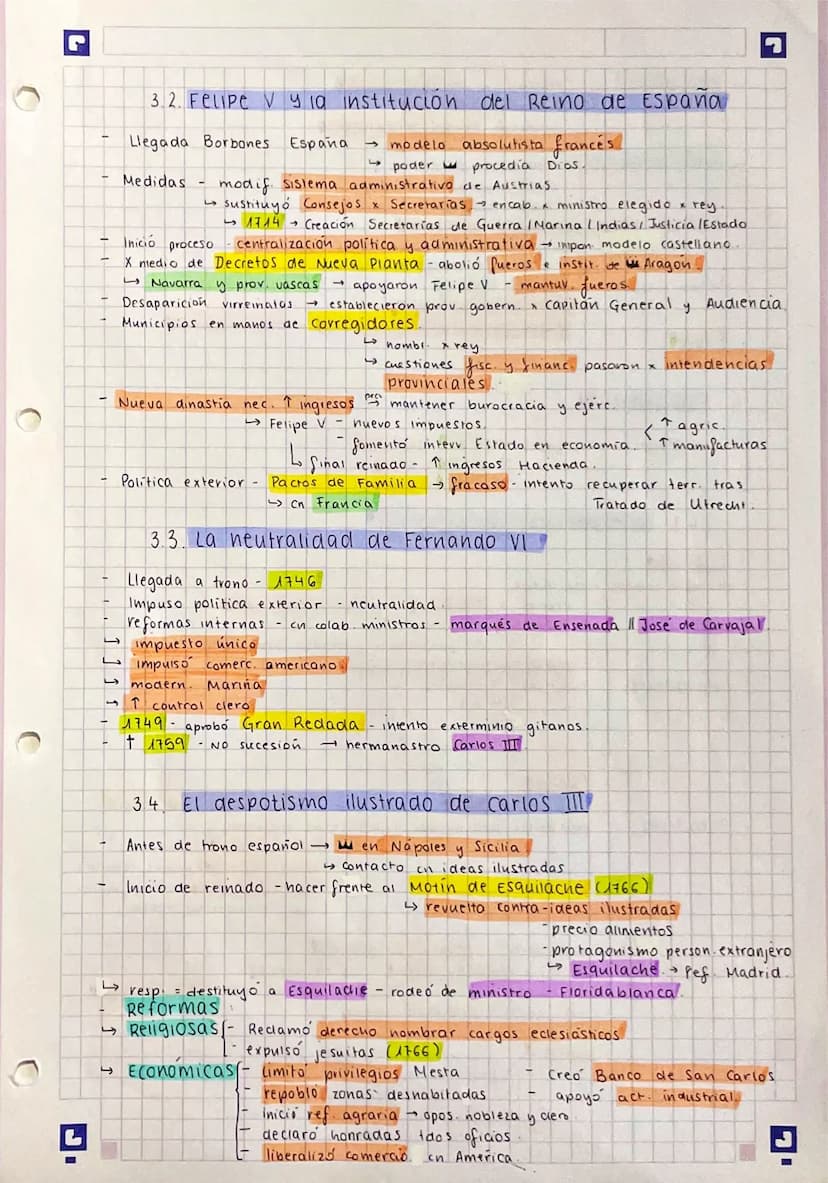 3.2. Felipe V y la institución del Reino de España
- Llegada Borbones España → modelo absolutista francés
↳ poder 👑 procedía Dios.
- Medidas - modif. sistema administrativo de Austrias
↳ sustituyó Consejos x Secretarias → encab. x ministro elegido x rey.
↳ 1714 → Creación Secretarías de Guerra / Marina / Indias / Justicia / Estado
- Inició proceso - centralización política y administrativa → impon. modelo castellano.
- X medio de Decretos de Nueva Planta - abolió fueros e instit. de 👑 Aragón.
↳ Navarra y prov. vascas → apoyaron Felipe V - mantuv. fueros
- Desaparición virreinatos → establecieron prov. gobern. x Capitán General y Audiencia
- Municipios en manos de corregidores.
↳ nombr. x rey
↳ cuestiones fisc. y financ. pasaron x intendencias
provinciales.
- Nueva dinastía nec. ↑ ingresos para → mantener burocracia y ejérc.
↳ Felipe V - nuevos impuestos.
- fomentó interv. Estado en economía. < ↑ agric.
↑ manufacturas
↳ final reinado - ↑ ingresos Hacienda.
- Política exterior - Pactos de Familia → fracaso - intento recuperar terr. tras
↳ cn Francia
Tratado de Utrecht.
3.3. La neutralidad de Fernando VI
- Llegada a trono - 1746
- Impuso política exterior - neutralidad
- reformas internas - cn colab. ministros - marqués de Ensenada || José de Carvajal.
↳ impuesto único
↳ impulsó comerc. americano
↳ modern. Marina
↳ ↑ control clero
- 1749 - aprobó Gran Redada - intento exterminio gitanos.
- † 1759 - NO sucesión → hermanastro Carlos III
3.4. El despotismo ilustrado de Carlos III
- Antes de trono español → 👑 en Nápoles y Sicilia
↳ contacto cn ideas ilustradas
- Inicio de reinado - hacer frente al Motín de Esquilache (1766)
↳ revuelto contra-ideas ilustradas
- precio alimentos
- protagonismo person. extranjero
↳ Esquilache → Pef. Madrid.
↳ resp. = destituyó a Esquilache - rodeó de ministro - Floridablanca.
- Reformas
↳ Religiosas - Reclamó derecho nombrar cargos eclesiásticos
- expulsó jesuitas (1766)
↳ Económicas - limitó privilegios Mesta - creó Banco de San Carlos
- repobló zonas deshabitadas - apoyó act. industrial
- inició ref. agraria → opos. nobleza y clero.
- declaró honradas tdos oficios.
- liberalizó comercio cn América.